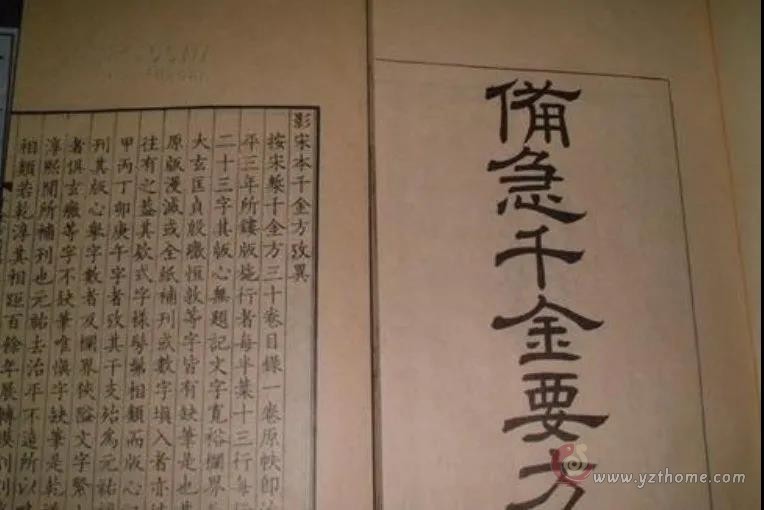 備急千金要方
影宋本千金方攷異
按宋槧千金方三十卷目錄一卷原帙即治
平三年所鏤版施行者每半葉十三行每行
二十三字其版心無題記文字寬裕欄界
大玄匡貞殷徵恒敦等字皆有缺筆是也
原版漫滅或全紙補刊或數字填入者亦
往有之葢其欵式字樣髣髴相類而版心
甲丙丁卯庚午字者攷其干支殆為元祐
刊其版心舉字數者及欄界狹隘文字緊
者俱玄徵等字不缺筆唯慎字缺筆是乾
淳熙閒所補刊也元祐去治平不遠所以
相類若乾淳其相距百餘年展轉模刻
www.yzthome.com